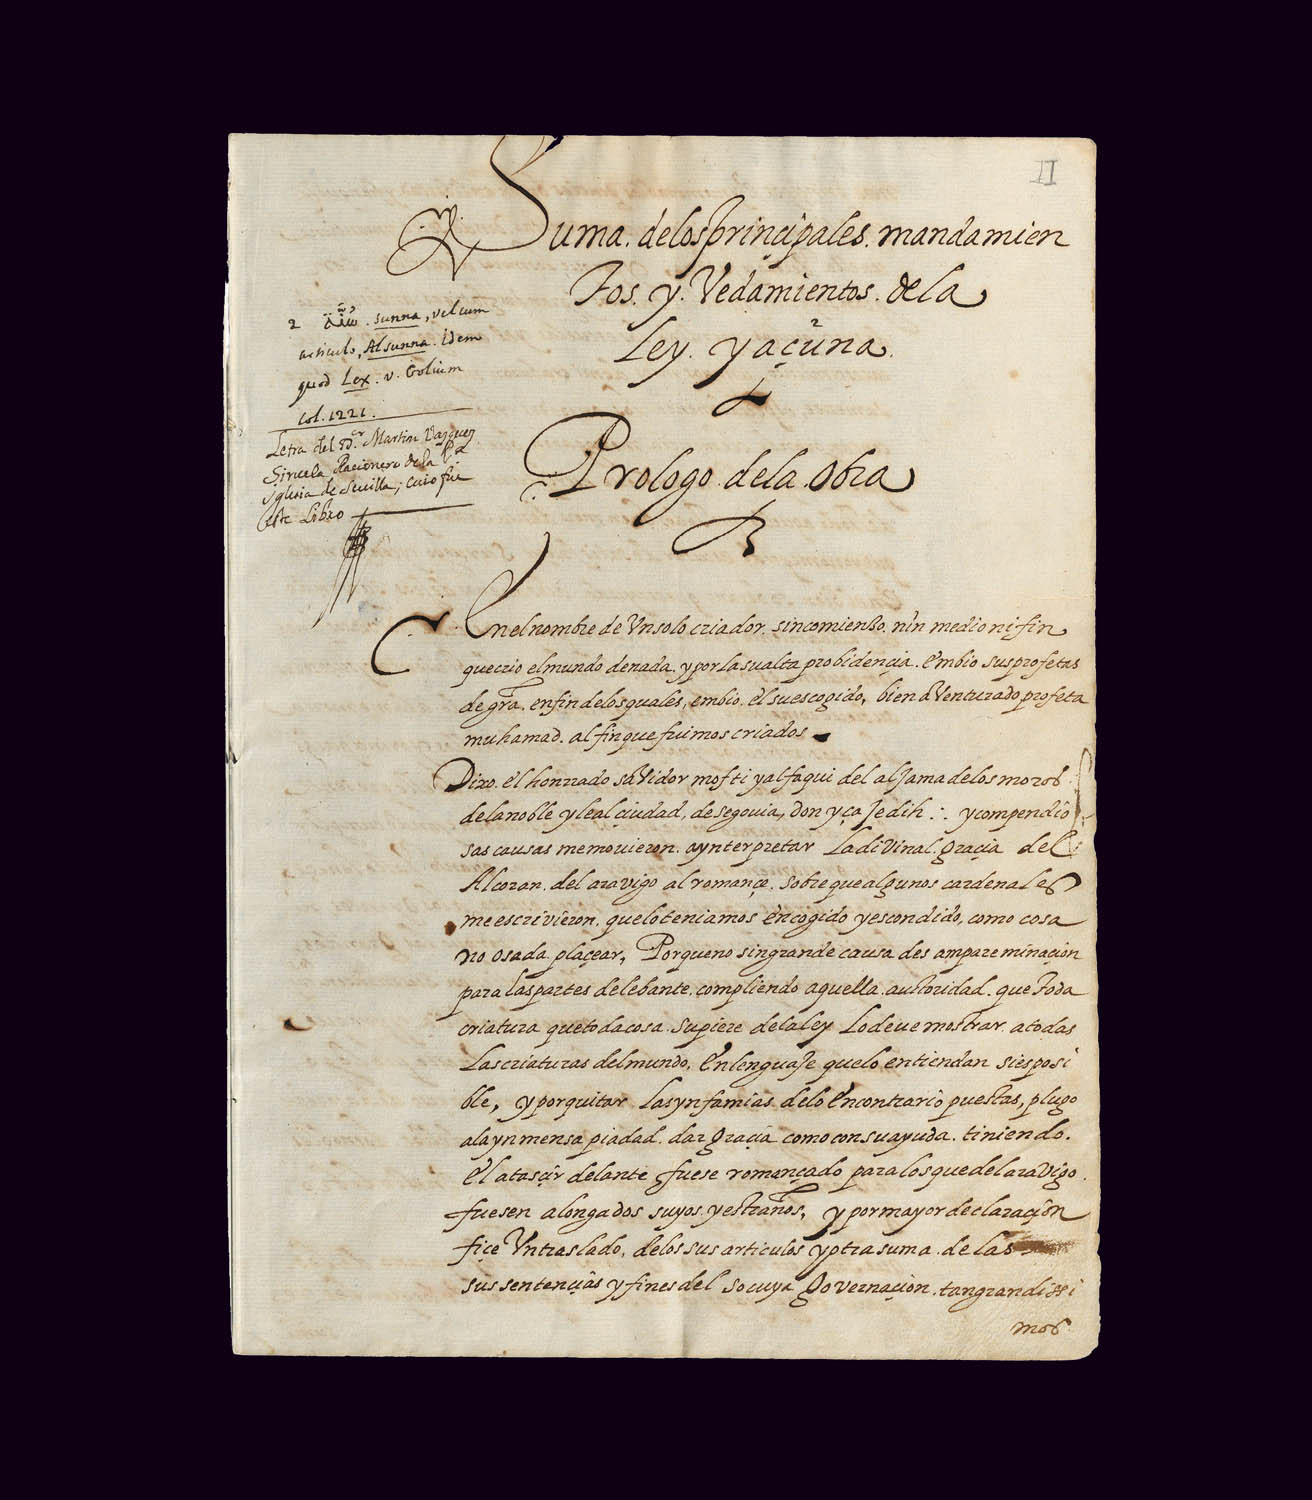 II
Suma. delos principales. mandamien
tos. y. Vedamientos. de la
Ley. y açuna.
2
2 سنة. sunna, vel cum
articulo, Alsunna. idem
quod Lex. v. Golium
col. 1221.
Letra del Dr. Martin Vazquez
Siruela Racionero de la
Iglesia de Sevilla, cuio fue
este Libro
Prologo. dela. Obra
En el nombre de Vn solo criador. sin comienso. nin medio ni fin
que crio el mundo de nada. y por la su alta probidençia. embio sus profetas
de gra. en fin delos quales, embio. el su escogido, bien aVenturado profeta
muhamad. al fin que fuimos criados
Dixo. el honrrado saVidor mofti y alfaqui del aljama delos moros
dela noble y leal çiudad, de segouia, don yça Jedih ∴ y compendio
sas causas me mouieron. a ynterpretar La diVinal. graçia del
Alcoran. del aravigo al romançe. sobre que algunos cardenales
me escrivieron. que lo teniamos encogido y escondido, como cosa
no osada plaçear, Porque no sin grande causa desampare mi naçion
para las partes de lebante. compliendo aquella. autoridad. que toda
criatura que toda cosa. supiere dela ley Lo deue mostrar. a todas
Las criaturas del mundo, En lenguaje que lo entiendan si es posi
ble, y por quitar las ynfamias delo encontrario puestas, plugo
ala ynmensa piadad. dar graçia como con su ayuda. tiniendo.
el atasçir delante fuese romançado para los que del araVigo
fuesen alongados suyos. y estraños, y por mayor declaraçion
fiçe Vn traslado, delos sus articulos y otra suma. de las
sus sentençias y fines del so cuya governaçion. tan grandissi
mos